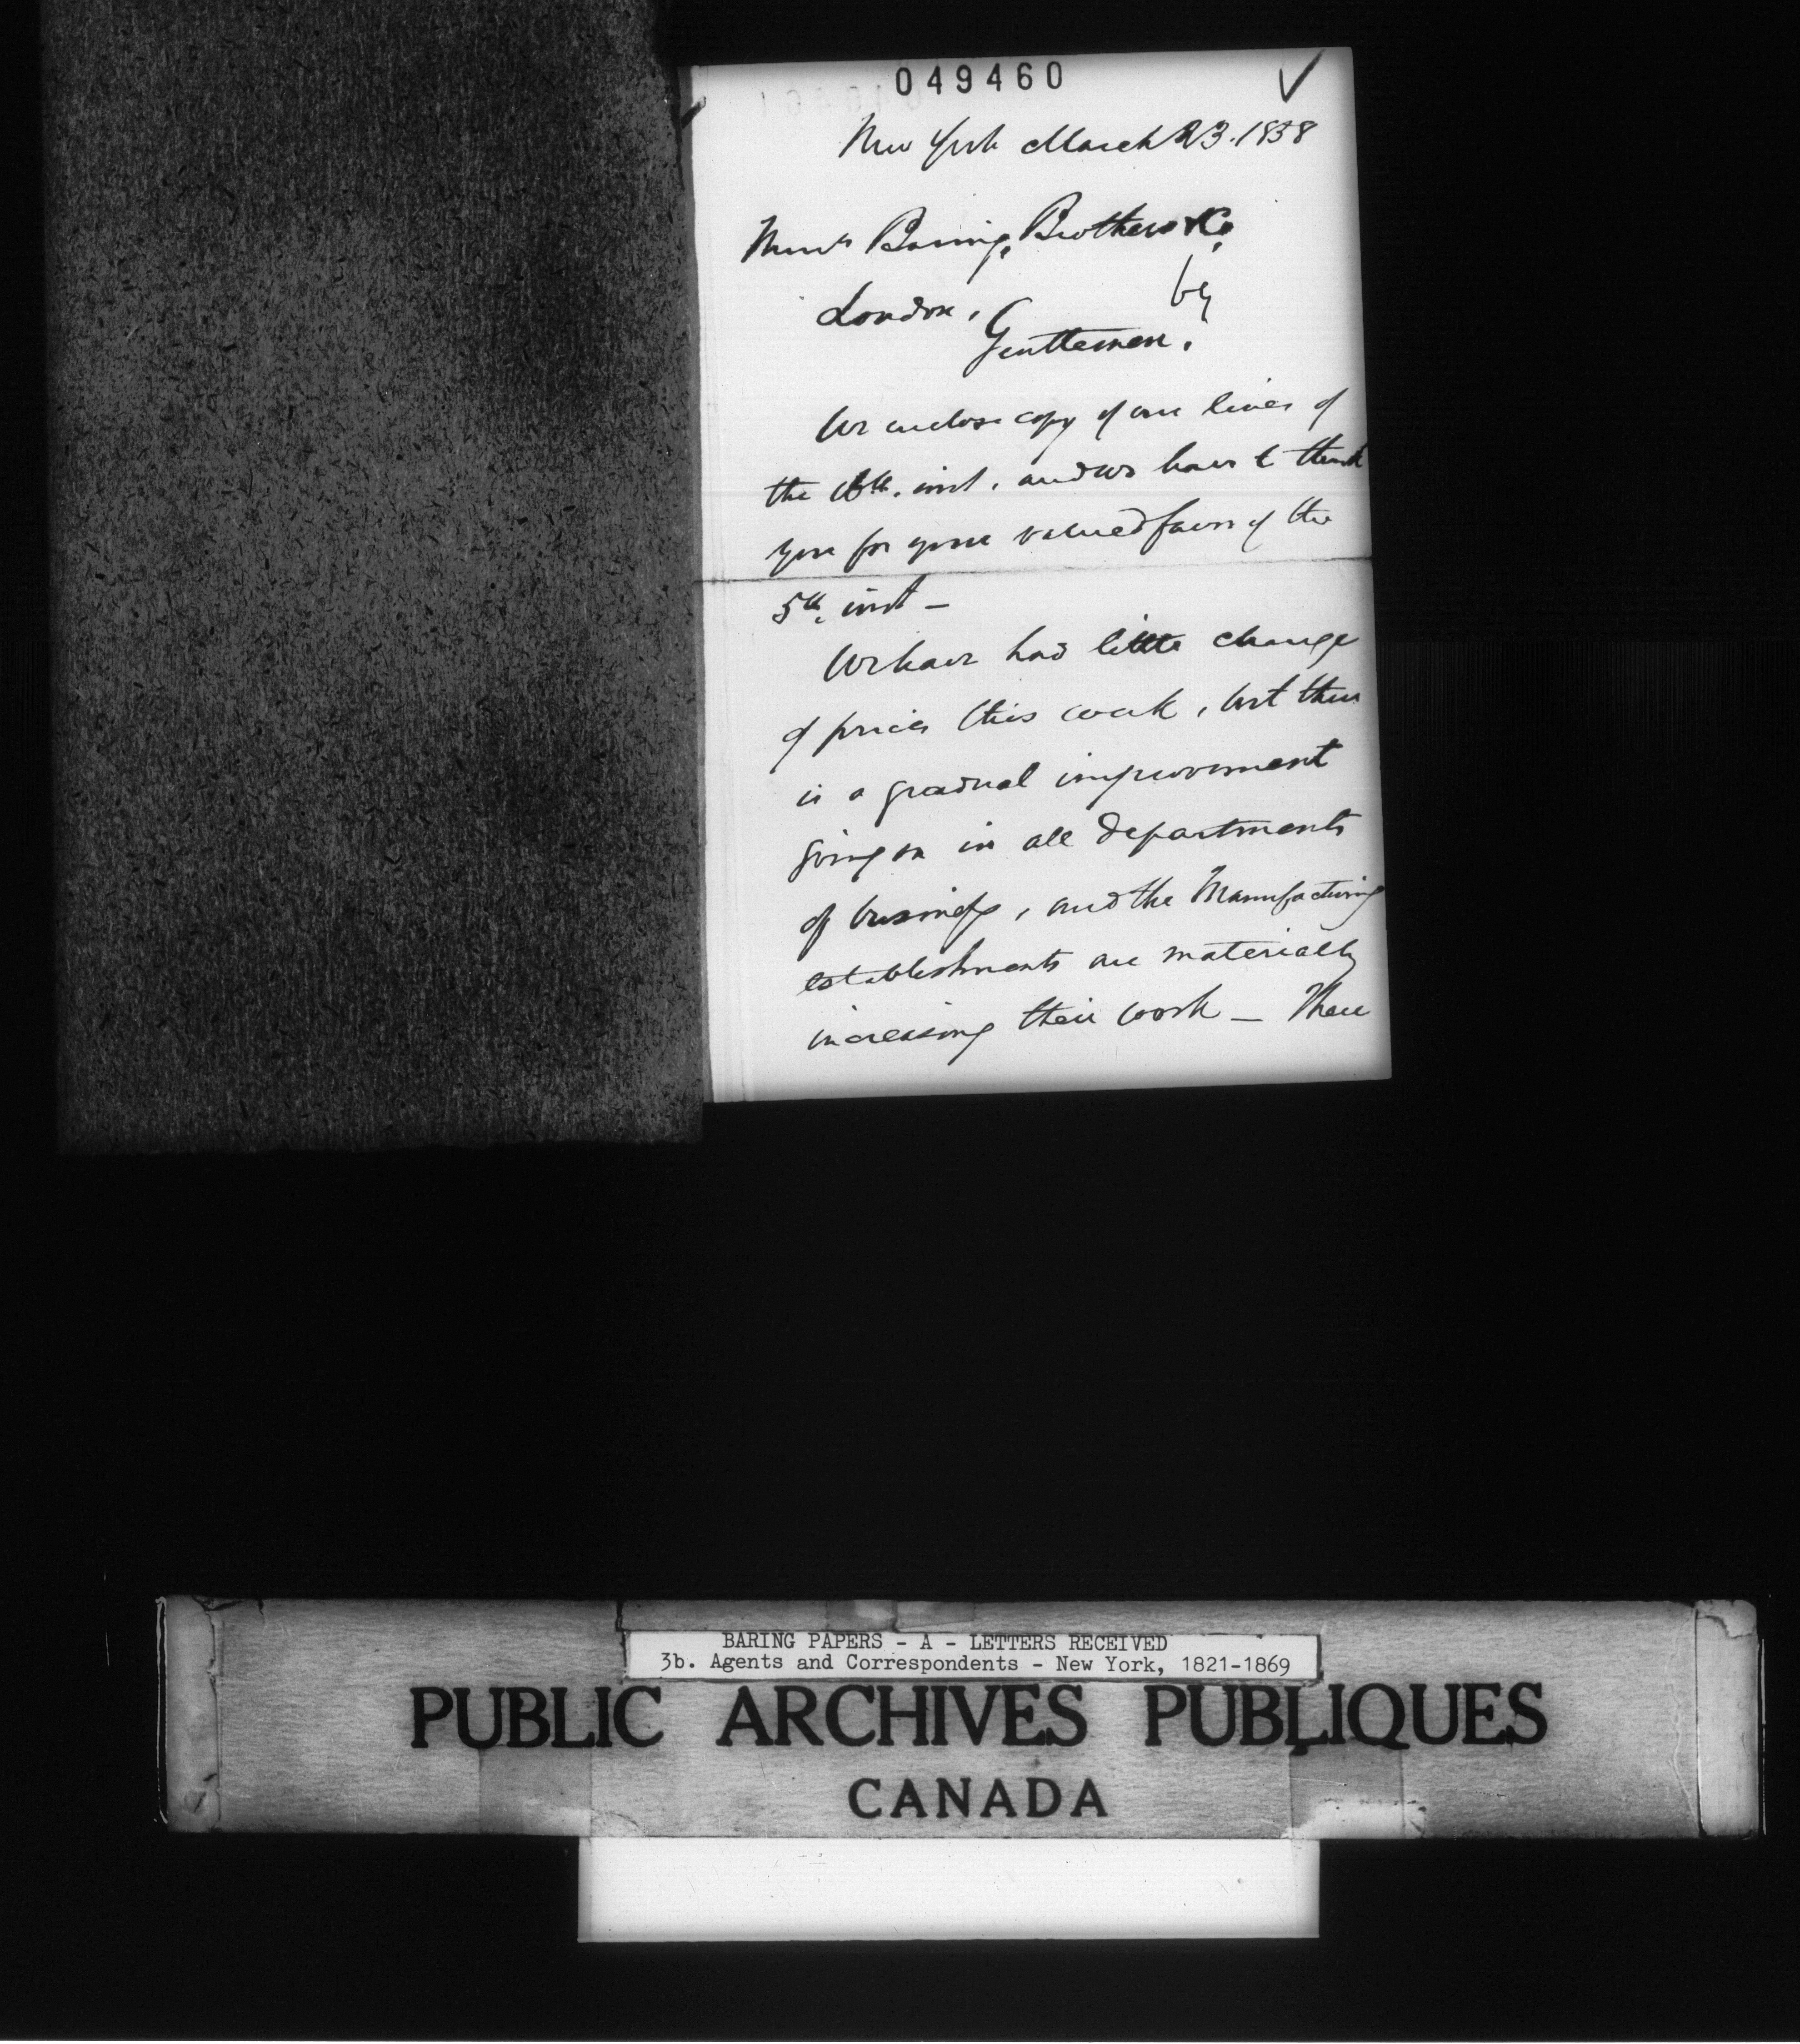 049460
New York March 23. 1858
Messrs Baring, Brothers & Co
London,
Gentlemen,
We enclose copy of our lines of
the 16th. inst. and we have to thank
you for your valued favor of the
5th. inst —
We have had little change
of prices this week, but there
is a gradual improvement
going on in all departments
of business, and the Manufacturing
establishments are materially
increasing their work — There
BARING PAPERS - A - LETTERS RECEIVED
3b. Agents and Correspondents - New York, 1821-1869
PUBLIC ARCHIVES PUBLIQUES
CANADA